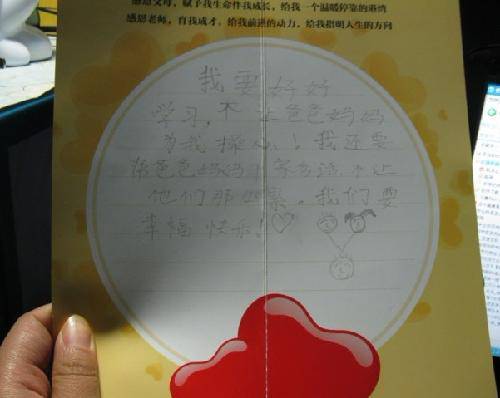 感恩父母，赋予我生命伴我成长，给我一个温暖停靠的港湾
感恩老师，育我成才，给我前进的动力，给我指明人生的方向
我要好好
学习，不让爸爸妈妈
为我操心！我还要
帮爸爸妈妈干家务活不让
他们那么累。我们要
幸福快乐！